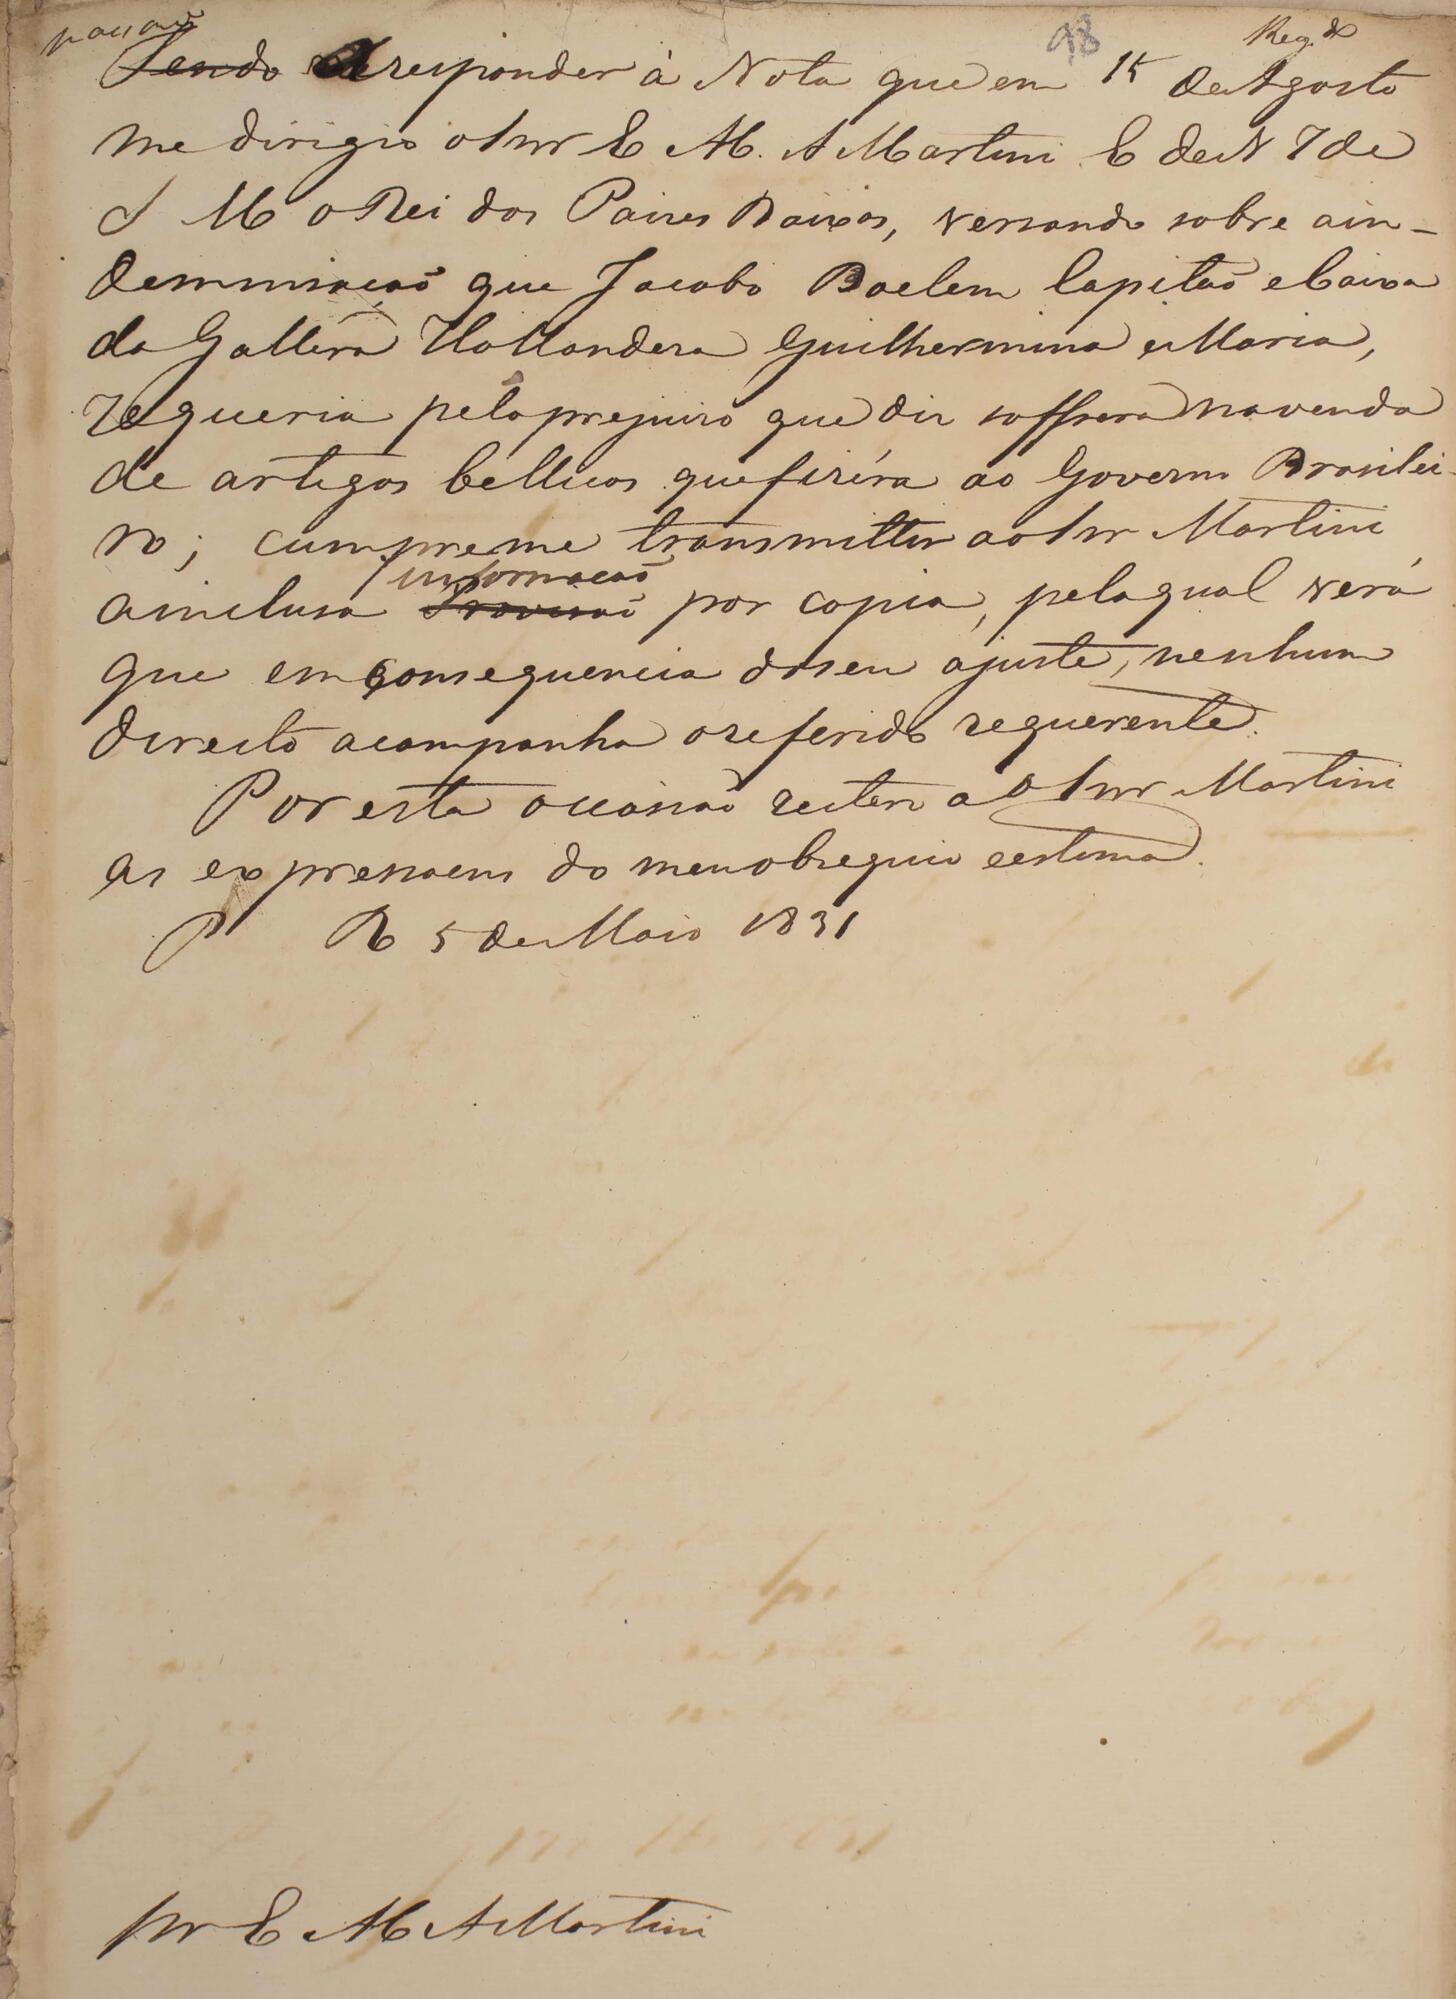 98 Reg.do
passou
Tendo de responder á Nota que em 15 de Agosto
me dirigio o Snr E. M. A Martini E de N 7 de
S M o Rei dos Paises Baixos, versando sobre a in-
demnisação que Jacobo Boelem Capitão e Caixa
da Gallera Hollandesa Guilhermina e Maria,
requeria pelo prejuiso que diz soffrera na venda
de artigos bellicos que fizéra ao Governo Brasilei-
ro; cumpre me transmittir ao Snr Martini
informação
a inclusa Provisão por copia, pela qual verá
que em consequencia do seu ajuste, nenhum
direito acompanha o referido requerente.
Por esta occasião reitero ao Snr Martini
as expressoens do meu obsequio e estima.
P R 5 de Maio 1831
Snr E M A Martini